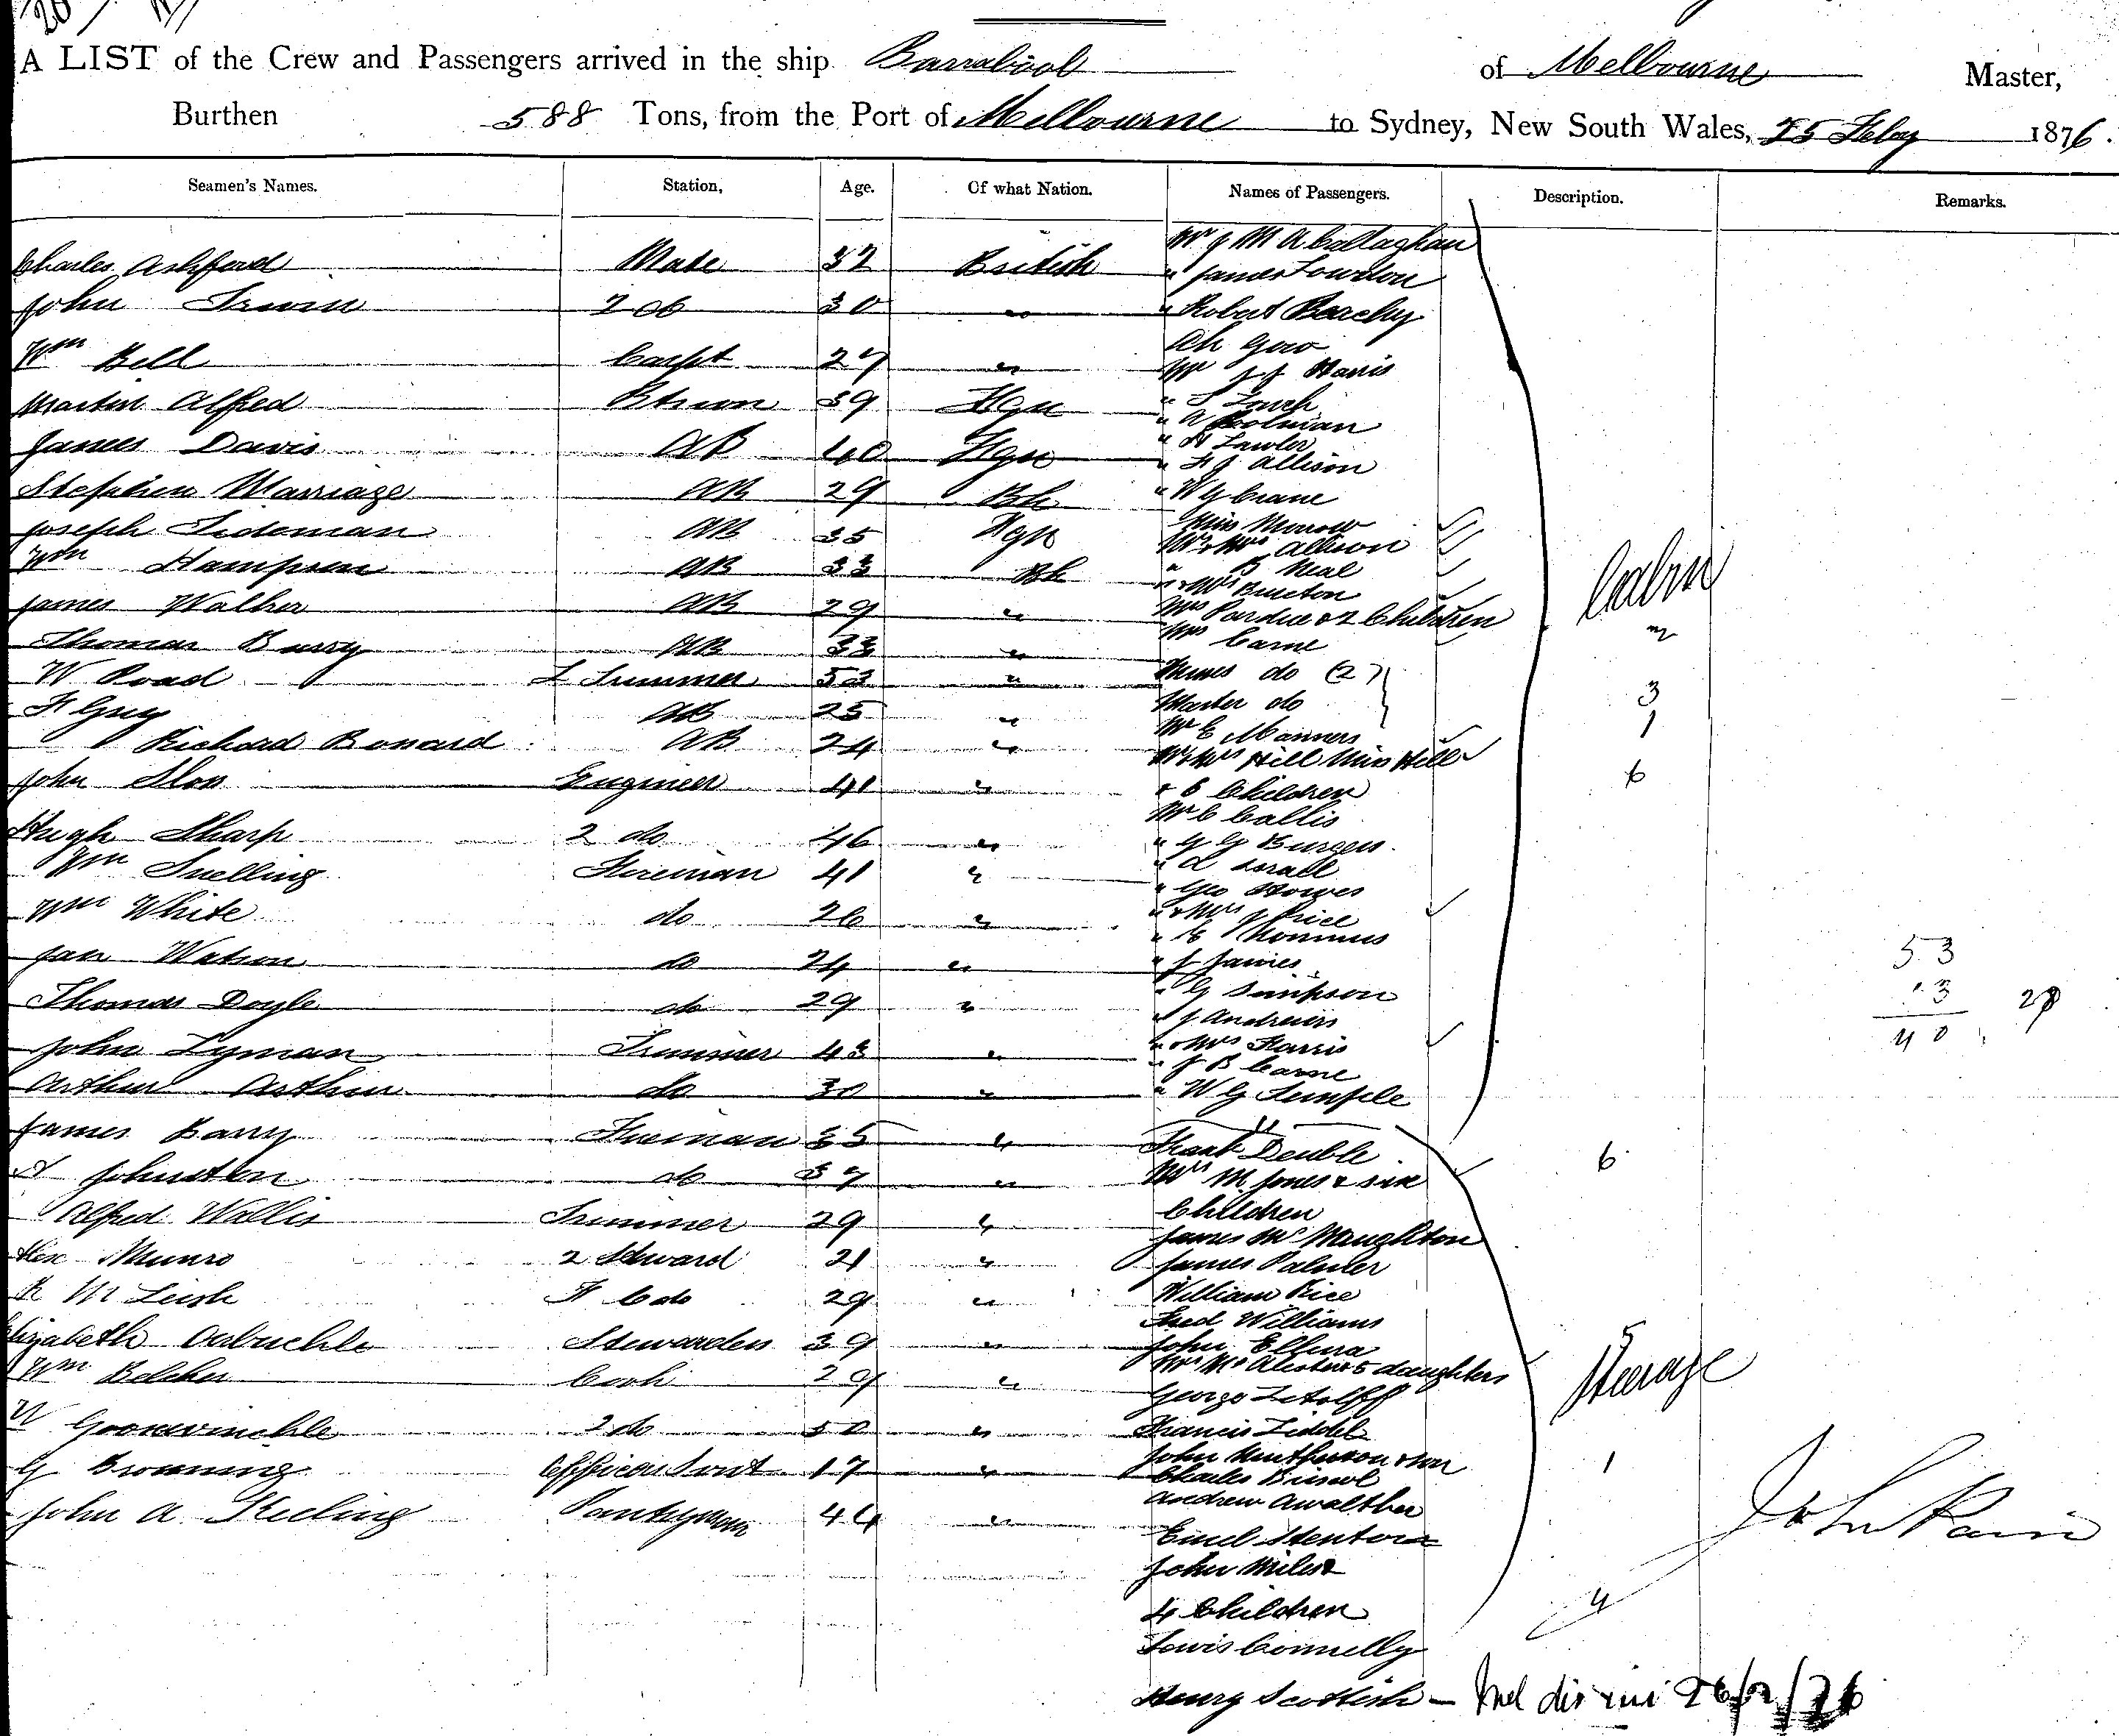 A LIST of the Crew and Passengers arrived in the ship Barrabool of Melbourne Master,
Burthen 588 Tons, from the Port of Melbourne to Sydney, New South Wales, 25 Feby 1876.
Seamen's Names. Station, Age. Of what Nation. Names of Passengers. Description. Remarks.
Mr J M A Callaghan
Charles Ashford Mate 32 British " James Lowdon
John Irwin 2 do 30 " " Robert
Ah Gow
Wm Bell Carpt 27 " Mr J J Harris
Martin Alfred 39 Fgn "
" A Poolman
James Davis AB 40 Fgn " Lawler
" F J Allison
Stephen Marriage AB 29 Bh " W G Crane
Joseph Tideman AB 35 Fgn Miss Morrow
Mr & Mrs Allison
Wm Hampson AB 33 Bh " B Neal
" & Mrs Bructon
James Walker AB 29 " Mrs Pardue & 2 Children Cabin
Thomas Barry AB 33 " Mrs Carne 2
W Road L Trimmer 53 " Misses do (2) 3
F Guy AB 25 " Master do 1
Richard Bonard AB 24 " Mr E Manners
Mr & Mrs Hill Miss Hill
John Slos Engineer 41 " & 6 Children 6
Mr C Callis
Hugh Sharp 2 do 46 " " G G Burgess
Wm Snelling Fireman 41 " "
" Geo Howes
Wm White do 26 " " & Mrs J Price
"
Jas Watson do 24 " " J James 53
Thomas Doyle do 29 " " G Simpson 13
" J Andrews 40
John Lyman Trimmer 43 " " & Mrs Harris
" J B Carne
Arthur Arthur do 30 " " W G Temple
James Barry Fireman 35 " Frank Deuble 6
A Johnston do 37 " Mrs M Jones & six
Alfred Wallis Trimmer 29 " Children
James McNaughton
Alex Munro 2 Steward 21 " James Palmer
R McLeish F C do 29 " William Rice
Fred Williams
Elizabeth Arbuckle Stewardess 39 " John
Mrs McAlister & 5 daughters 5
Wm Belcher Cook 29 " George Steerage
2 do 50 " Francis Liddel
John & son 1
G Browning Officers Servt 17 " Charles
Andrew Awalther
John A Keeling Pantryman 44 " Emil John
John Miles &
4 Children 4
Lewis Connelly
Henry